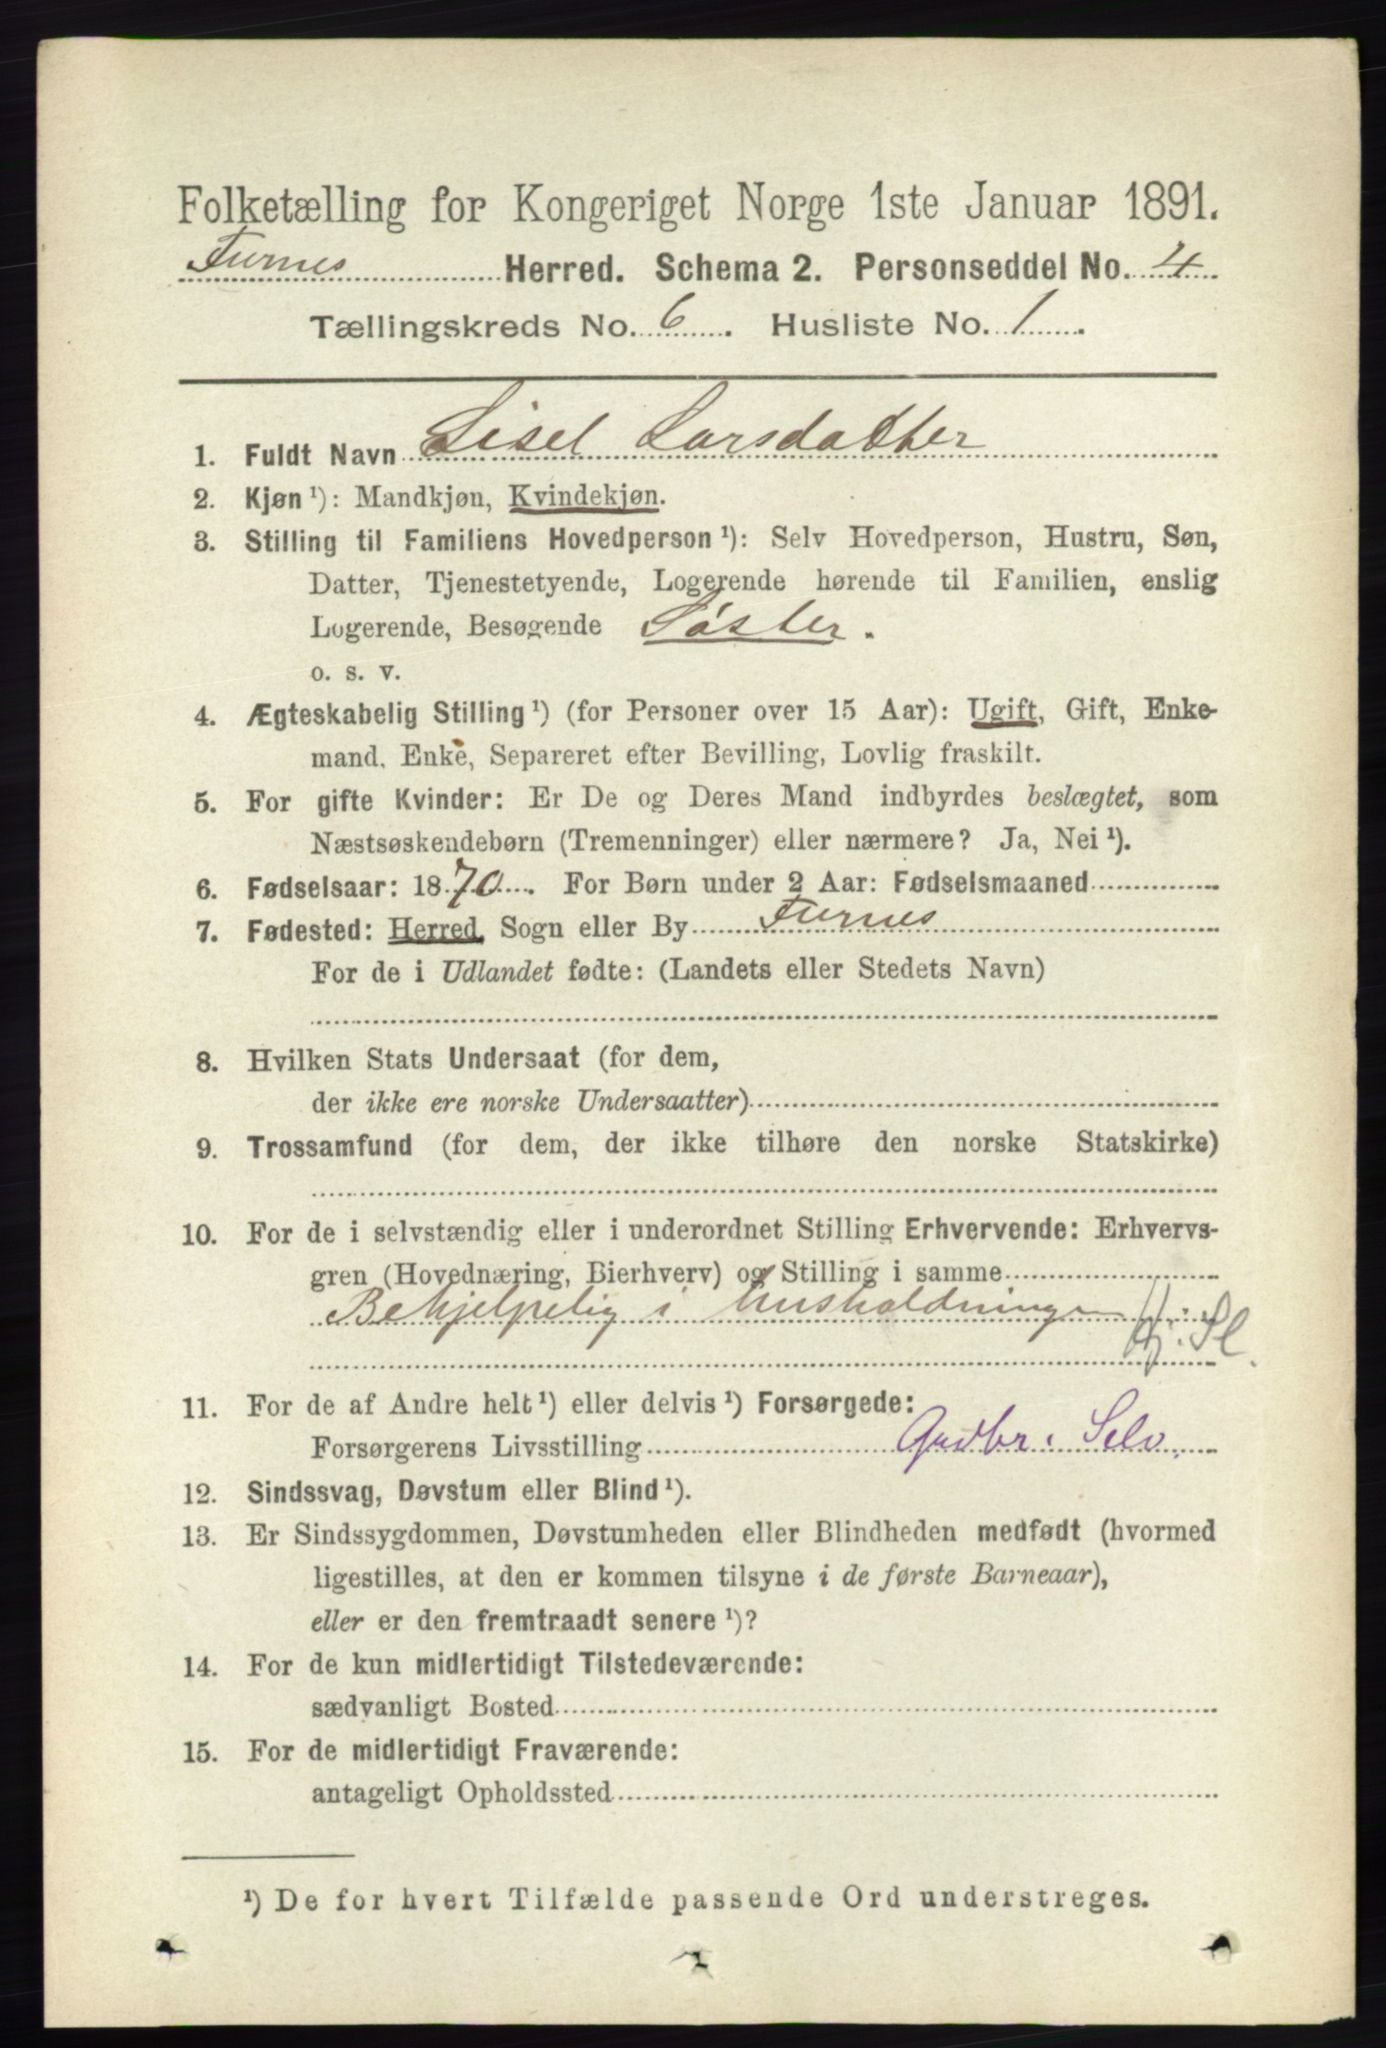 Folketælling for Kongeriget Norge 1ste Januar 1891.
Furnes Herred. Schema 2. Personseddel No. 4
Tællingskreds No. 6. Husliste No. 1.
1. Fuldt Navn Sisel Larsdatter
2. Kjøn ¹): Mandkjøn, Kvindekjøn.
3. Stilling til Familiens Hovedperson ¹): Selv Hovedperson, Hustru, Søn,
Datter, Tjenestetyende, Logerende hørende til Familien, enslig
Logerende, Besøgende Søster.
o. s. v.
4. Ægteskabelig Stilling ¹) (for Personer over 15 Aar): Ugift, Gift, Enke-
mand, Enke, Separeret efter Bevilling, Lovlig fraskilt.
5. For gifte Kvinder: Er De og Deres Mand indbyrdes beslægtet, som
Næstsøskendebørn (Tremenninger) eller nærmere? Ja, Nei ¹).
6. Fødselsaar: 1870. For Børn under 2 Aar: Fødselsmaaned
7. Fødested: Herred, Sogn eller By Furnes
For de i Udlandet fødte: (Landets eller Stedets Navn)
8. Hvilken Stats Undersaat (for dem,
der ikke ere norske Undersaatter)
9. Trossamfund (for dem, der ikke tilhøre den norske Statskirke)
10. For de i selvstændig eller i underordnet Stilling Erhvervende: Erhvervs-
gren (Hovednæring, Bierhverv) og Stilling i samme
Behjelpelig i husholdningen
11. For de af Andre helt ¹) eller delvis ¹) Forsørgede:
Forsørgerens Livsstilling Gaardbr. Selv.
12. Sindssvag, Døvstum eller Blind ¹).
13. Er Sindssygdommen, Døvstumheden eller Blindheden medfødt (hvormed
ligestilles, at den er kommen tilsyne i de første Barneaar),
eller er den fremtraadt senere ¹)?
14. For de kun midlertidigt Tilstedeværende:
sædvanligt Bosted
15. For de midlertidigt Fraværende:
antageligt Opholdssted
¹) De for hvert Tilfælde passende Ord understreges.